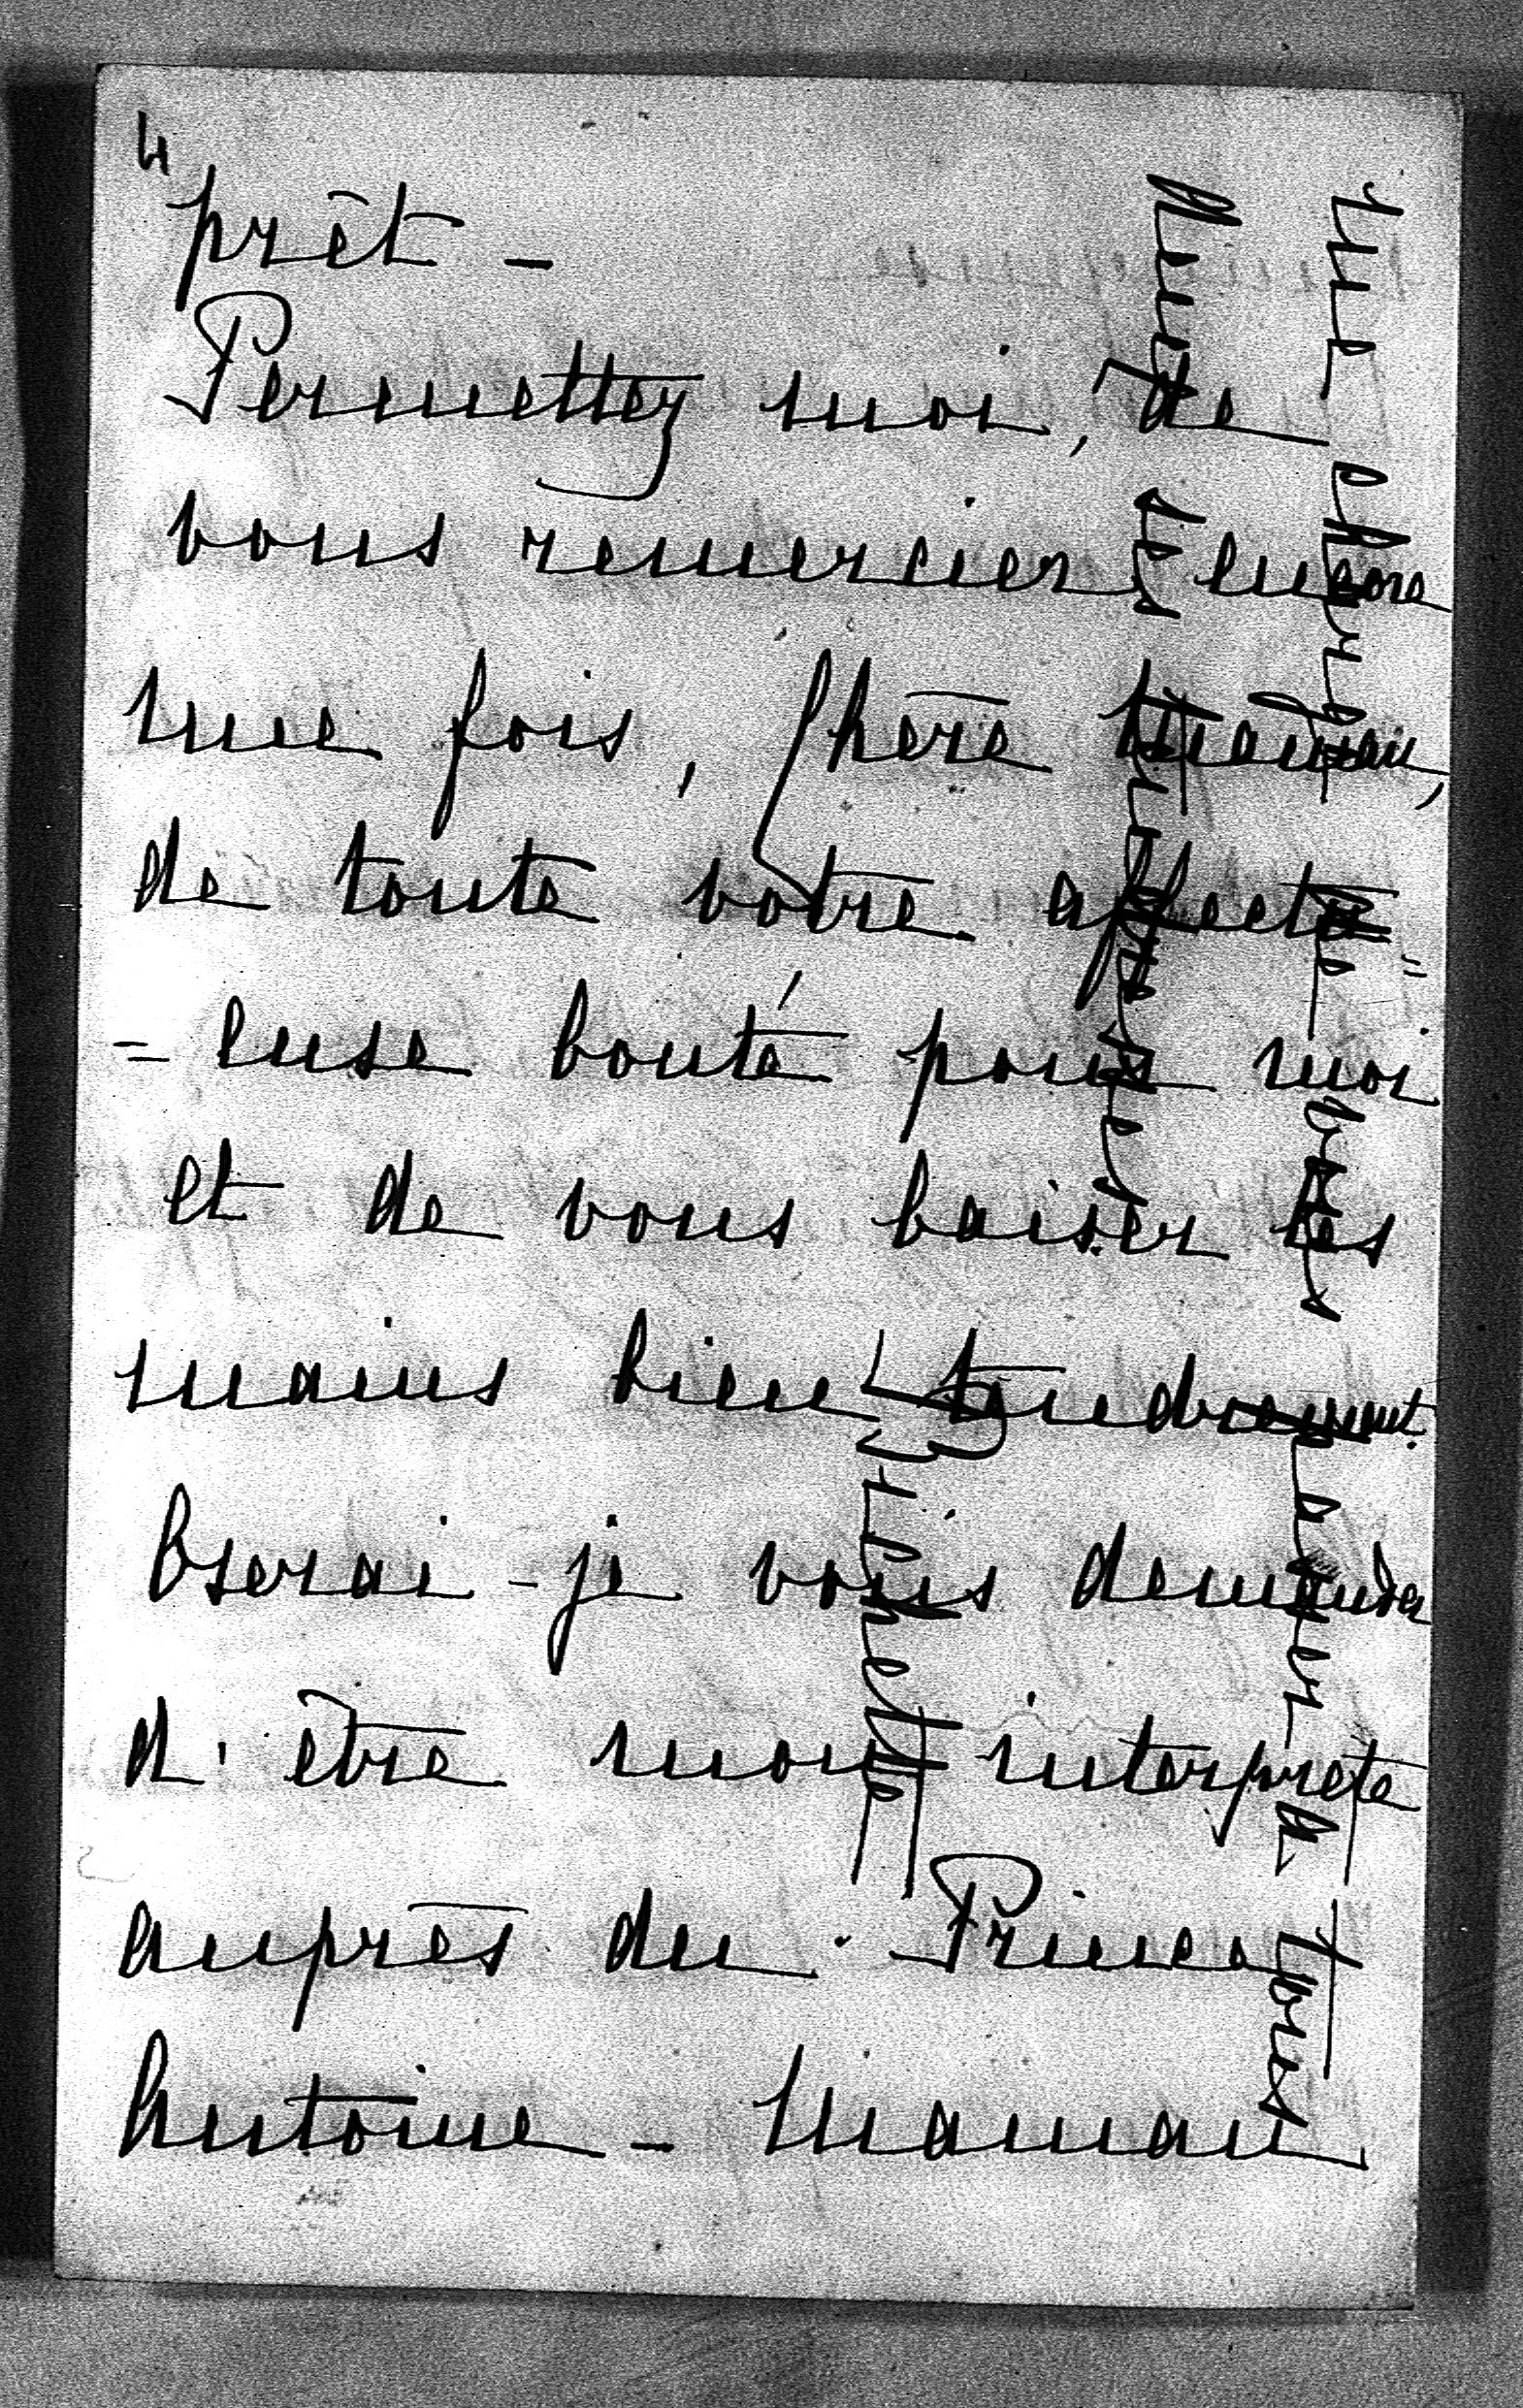 4
prêt -
Permettez moi, de
vous remercier encore
une fois, chère Maman,
de toute votre affectu=
=euse bonté pour moi
et de vous baiser les
mains bien tendrement.
Oserai-je vous demander
d'être mon interprète
auprès du Prince
Antoine - Maman
me charge de vous donner à tous
deux ses tendresses